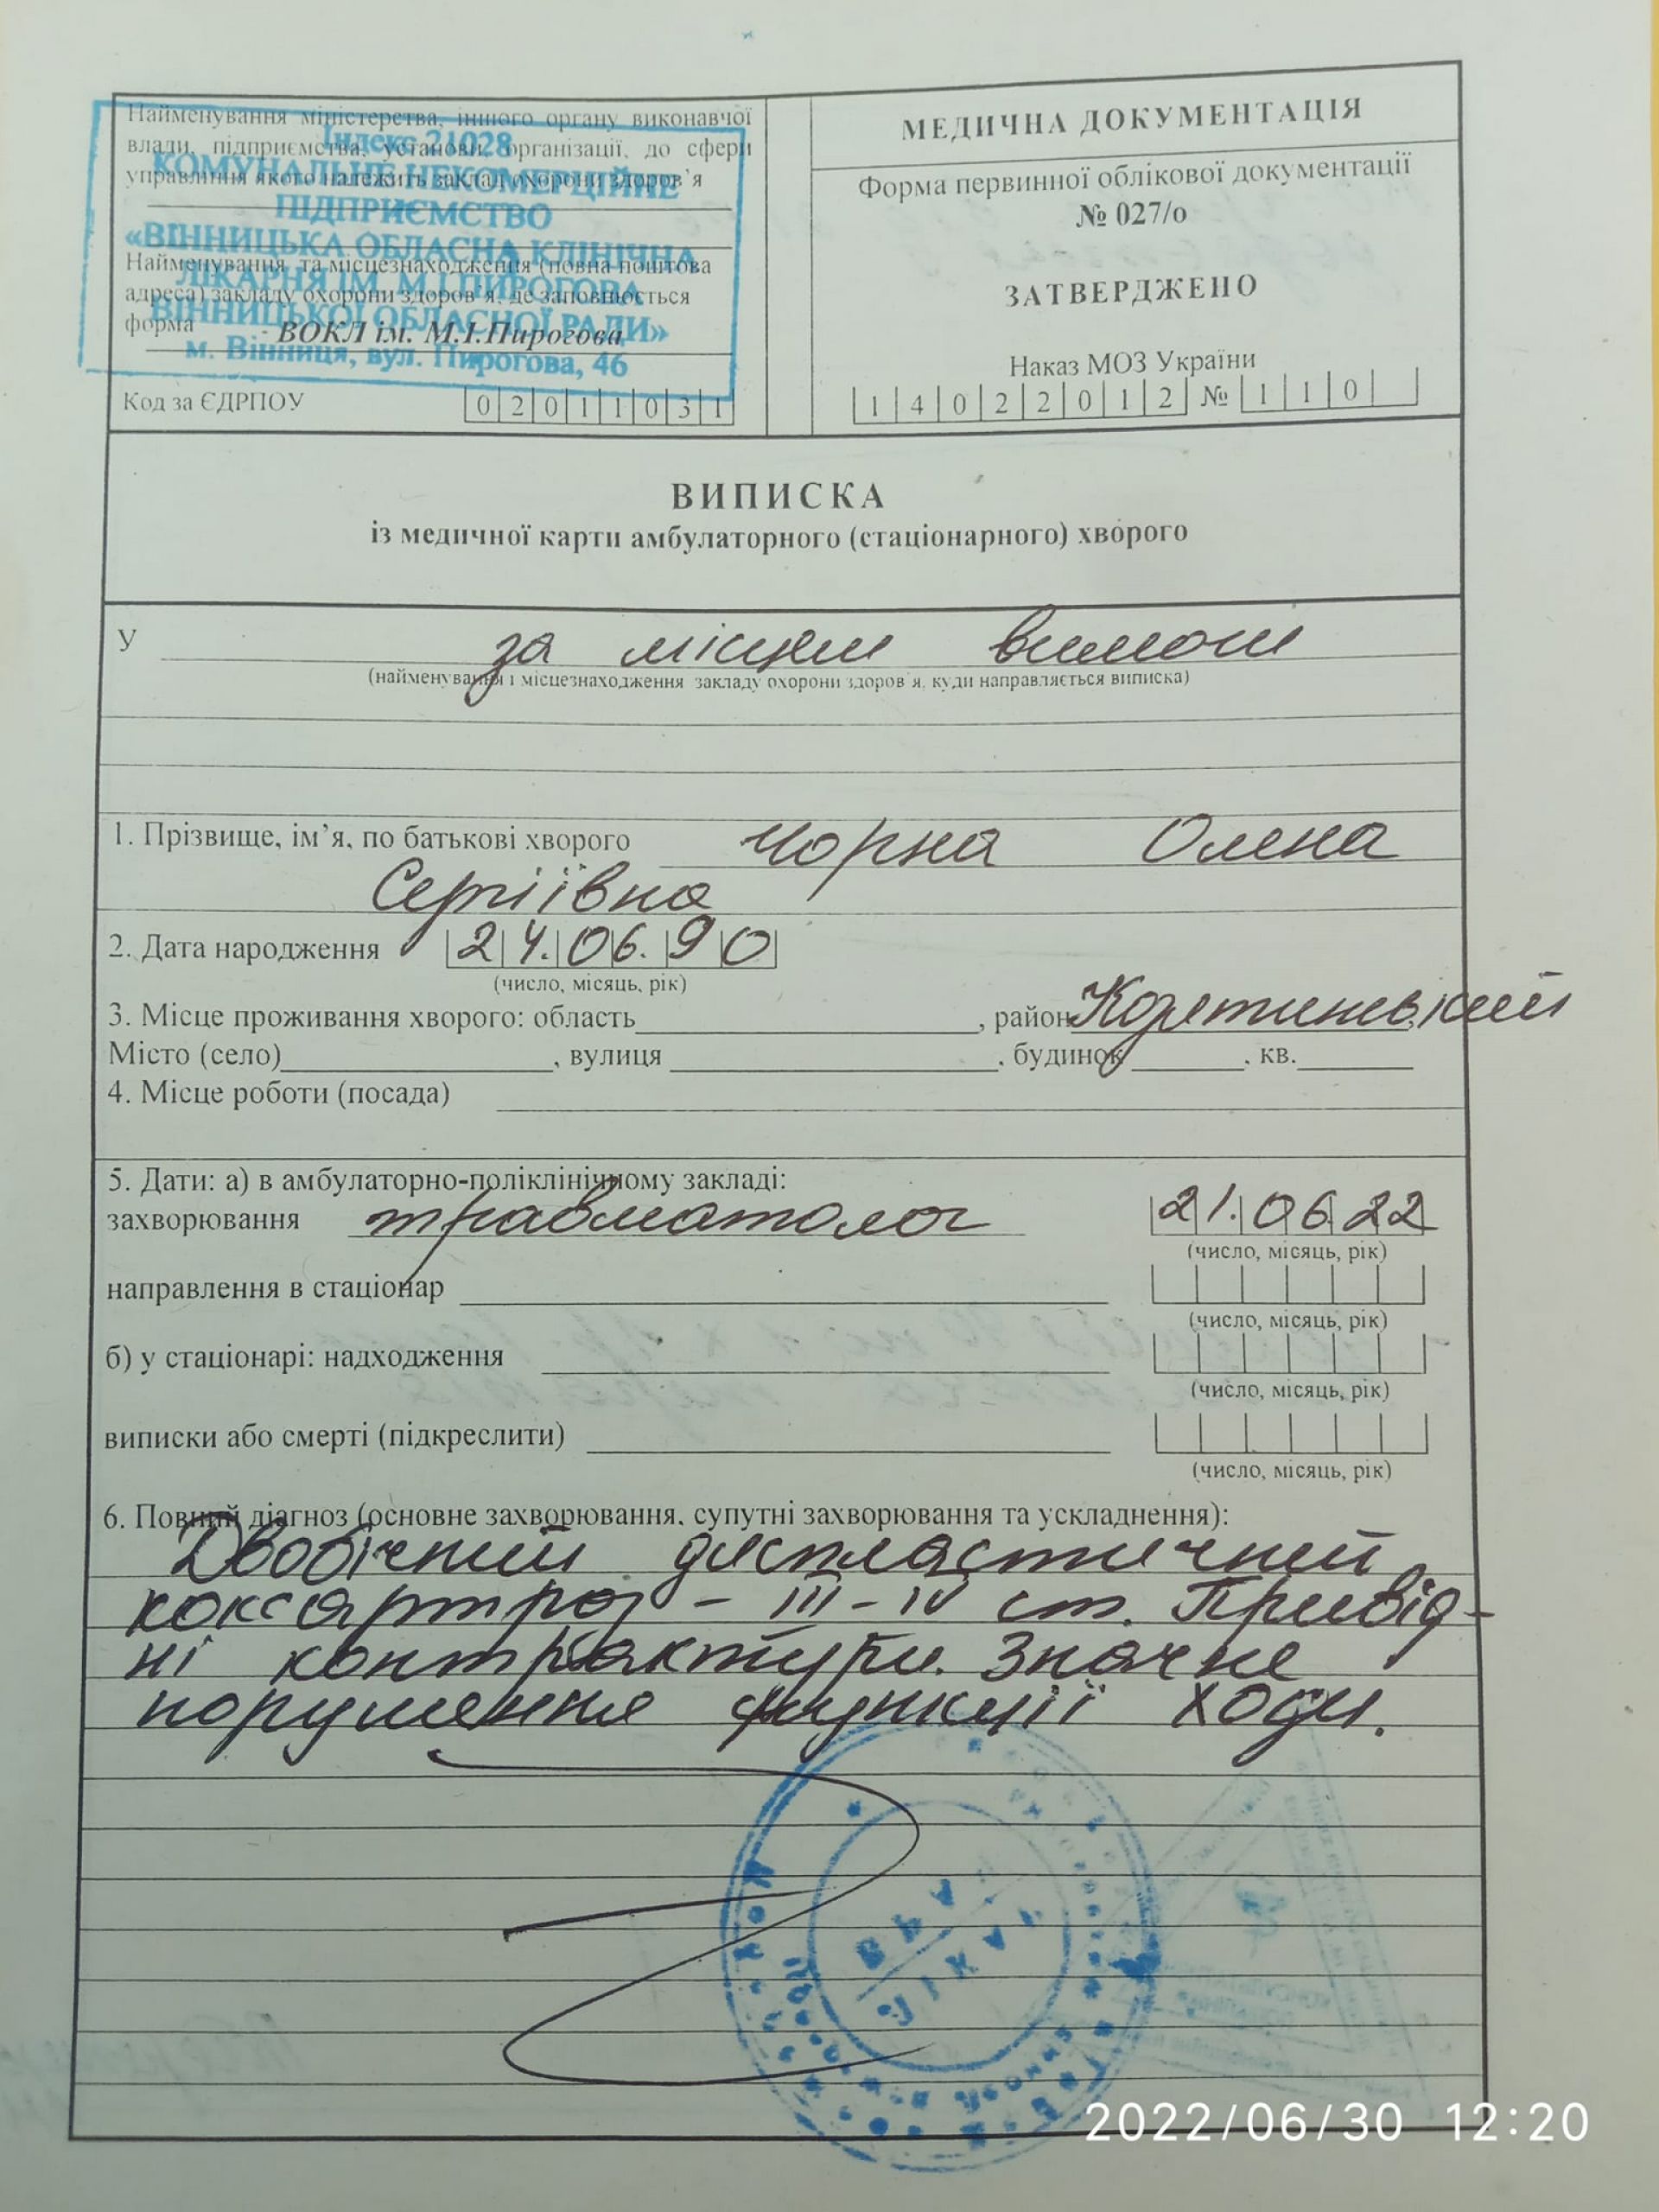 Найменування міністерства, іншого органу виконавчої
влади, підприємства, установи, організації, до сфери
управління якого належить заклад охорони здоров'я
Індекс 21028
КОМУНАЛЬНЕ НЕКОМЕРЦІЙНЕ
ПІДПРИЄМСТВО
«ВІННИЦЬКА ОБЛАСНА КЛІНІЧНА
ЛІКАРНЯ ІМ. М.І. ПИРОГОВА
ВІННИЦЬКОЇ ОБЛАСНОЇ РАДИ»
м. Вінниця, вул. Пирогова, 46
Найменування та місцезнаходження (повна поштова
адреса) закладу охорони здоров'я, де заповнюється
форма ВОКЛ ім. М.І.Пирогова
Код за ЄДРПОУ 02011031
МЕДИЧНА ДОКУМЕНТАЦІЯ
Форма первинної облікової документації
№ 027/о
ЗАТВЕРДЖЕНО
Наказ МОЗ України
14022012 № 110
ВИПИСКА
із медичної карти амбулаторного (стаціонарного) хворого
У за місцем вимоги
(найменування і місцезнаходження закладу охорони здоров'я, куди направляється виписка)
1. Прізвище, ім'я, по батькові хворого Чорна Олена
Сергіївна
2. Дата народження 24.06.90
(число, місяць, рік)
3. Місце проживання хворого: область, район
Місто (село), вулиця, будинок, кв.
4. Місце роботи (посада)
5. Дати: а) в амбулаторно-поліклінічному закладі:
захворювання травматолог 21.06.22
(число, місяць, рік)
направлення в стаціонар
(число, місяць, рік)
б) у стаціонарі: надходження
(число, місяць, рік)
виписки або смерті (підкреслити)
(число, місяць, рік)
6. Повний діагноз (основне захворювання, супутні захворювання та ускладнення):
Двобічний диспластичний
коксартроз - III-IV ст. Привід-
ні контрактури. Значне
порушення функції ходи.
2022/06/30 12:20